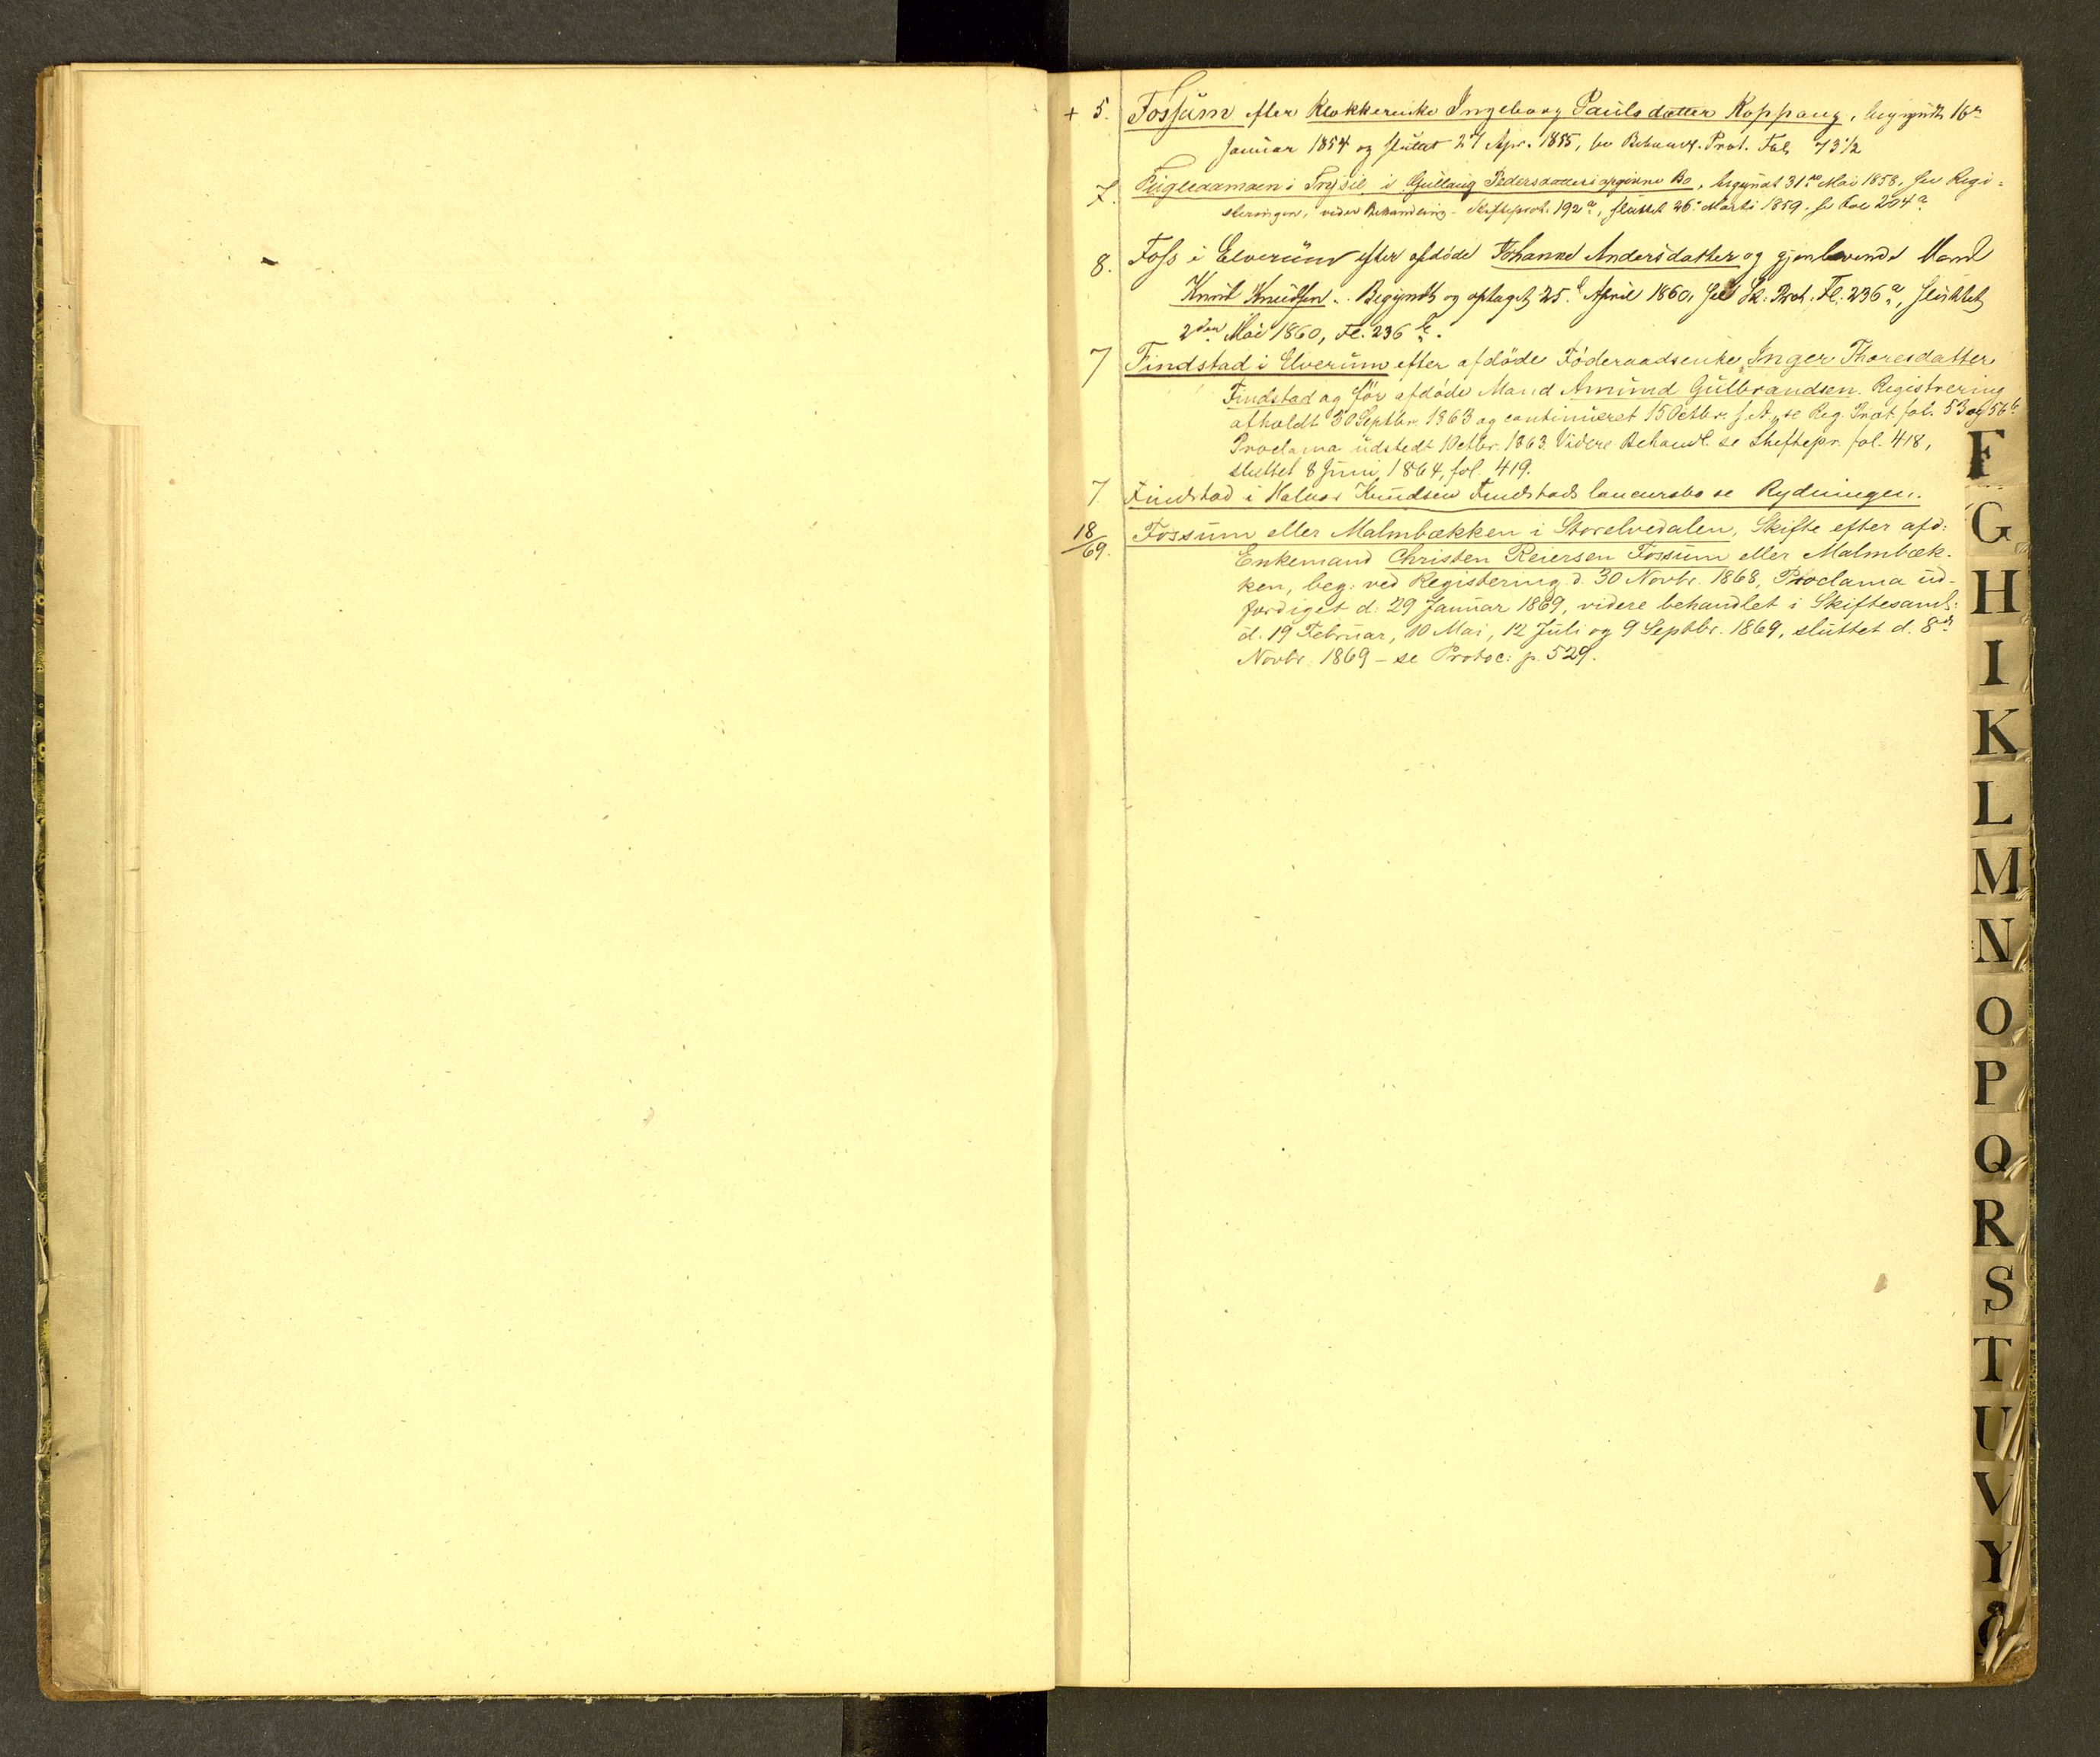 + 5. Fossum efter Klokkerenke Ingeborg Paulsdatter Koppang, begyndt 16de
Januar 1854 og sluttet 27 Apr. 1855, se Behandl. Prot. Fol. 73 1/2
7. Fugleaamoen i Trysil i Gullaug Pedersdatters opgivne Bo, begyndt 31te Mai 1858, se Regi-
steringen, videre Behandling - Skifteprot. 192a, sluttet 26. Marts 1859. se Fol 204a
8. Foss i Elverum efter afdøde Johanne Andersdatter og gjenlevende Mand
Knud Knudsen. Begyndt og optaget 25. April 1860, see Sk. Prot. Fl. 236a, sluttet
2den Mai 1860, Fl. 236b.
7 Findstad i Elverum efter afdöde Föderaadsenke Inger Thoresdatter
Findstad og för afdöde Mand Amund Gulbrandsen. Registrering
afholdt 30 Septbr. 1863 og continueret 15 Octbr. s. A., se Reg. Prot. fol. 53 og 56b
Proclama udstedt 1 Octbr. 1863. Videre Behandl. se Skiftepr. fol. 418,
sluttet 8 Juni 1864, fol. 419.
7. Findstad i Halvor Knudsen Findstads concursbo se Rydningen.
18/69. Fossum eller Malmbækken i Storelvedalen, Skifte efter afd:
Enkemand Christen Reiersen Fossum eller Malmbæk-
ken, beg: ved Registering d. 30 Novbr. 1868, Proclama ud-
færdiget d: 29 Januar 1869, videre behandlet i Skiftesaml:
d. 19 Februar, 10 Mai, 12 Juli og 9 Septbr. 1869, sluttet d. 8de
Novbr. 1869 - se Protoc: p. 529.
F
G
H
I
K
L
M
N
O
P
Q
R
S
T
U
V
Y